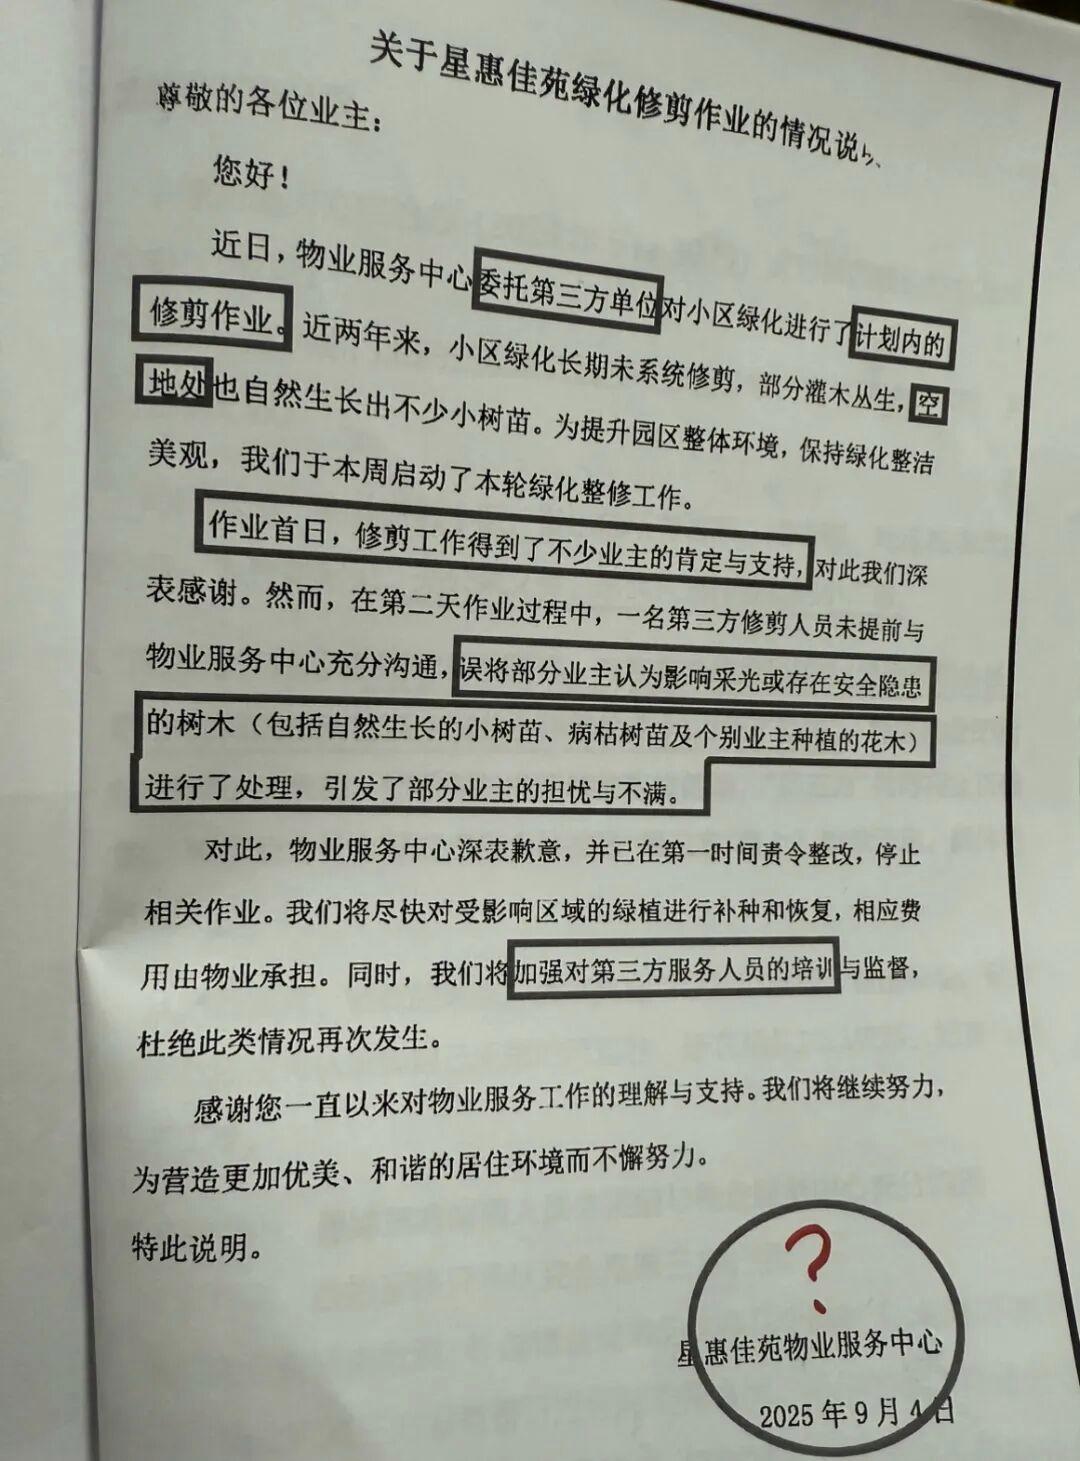 关于星惠佳苑绿化修剪作业的情况说
尊敬的各位业主：
您好！
近日，物业服务中心委托第三方单位对小区绿化进行了计划内的
修剪作业。近两年来，小区绿化长期未系统修剪，部分灌木丛生，空
地处也自然生长出不少小树苗。为提升园区整体环境，保持绿化整洁
美观，我们于本周启动了本轮绿化整修工作。
作业首日，修剪工作得到了不少业主的肯定与支持，对此我们深
表感谢。然而，在第二天作业过程中，一名第三方修剪人员未提前与
物业服务中心充分沟通，误将部分业主认为影响采光或存在安全隐患
的树木（包括自然生长的小树苗、病枯树苗及个别业主种植的花木）
进行了处理，引发了部分业主的担忧与不满。
对此，物业服务中心深表歉意，并已在第一时间责令整改，停止
相关作业。我们将尽快对受影响区域的绿植进行补种和恢复，相应费
用由物业承担。同时，我们将加强对第三方服务人员的培训与监督，
杜绝此类情况再次发生。
感谢您一直以来对物业服务工作的理解与支持。我们将继续努力，
为营造更加优美、和谐的居住环境而不懈努力。
特此说明。
?
星惠佳苑物业服务中心
2025年9月4日